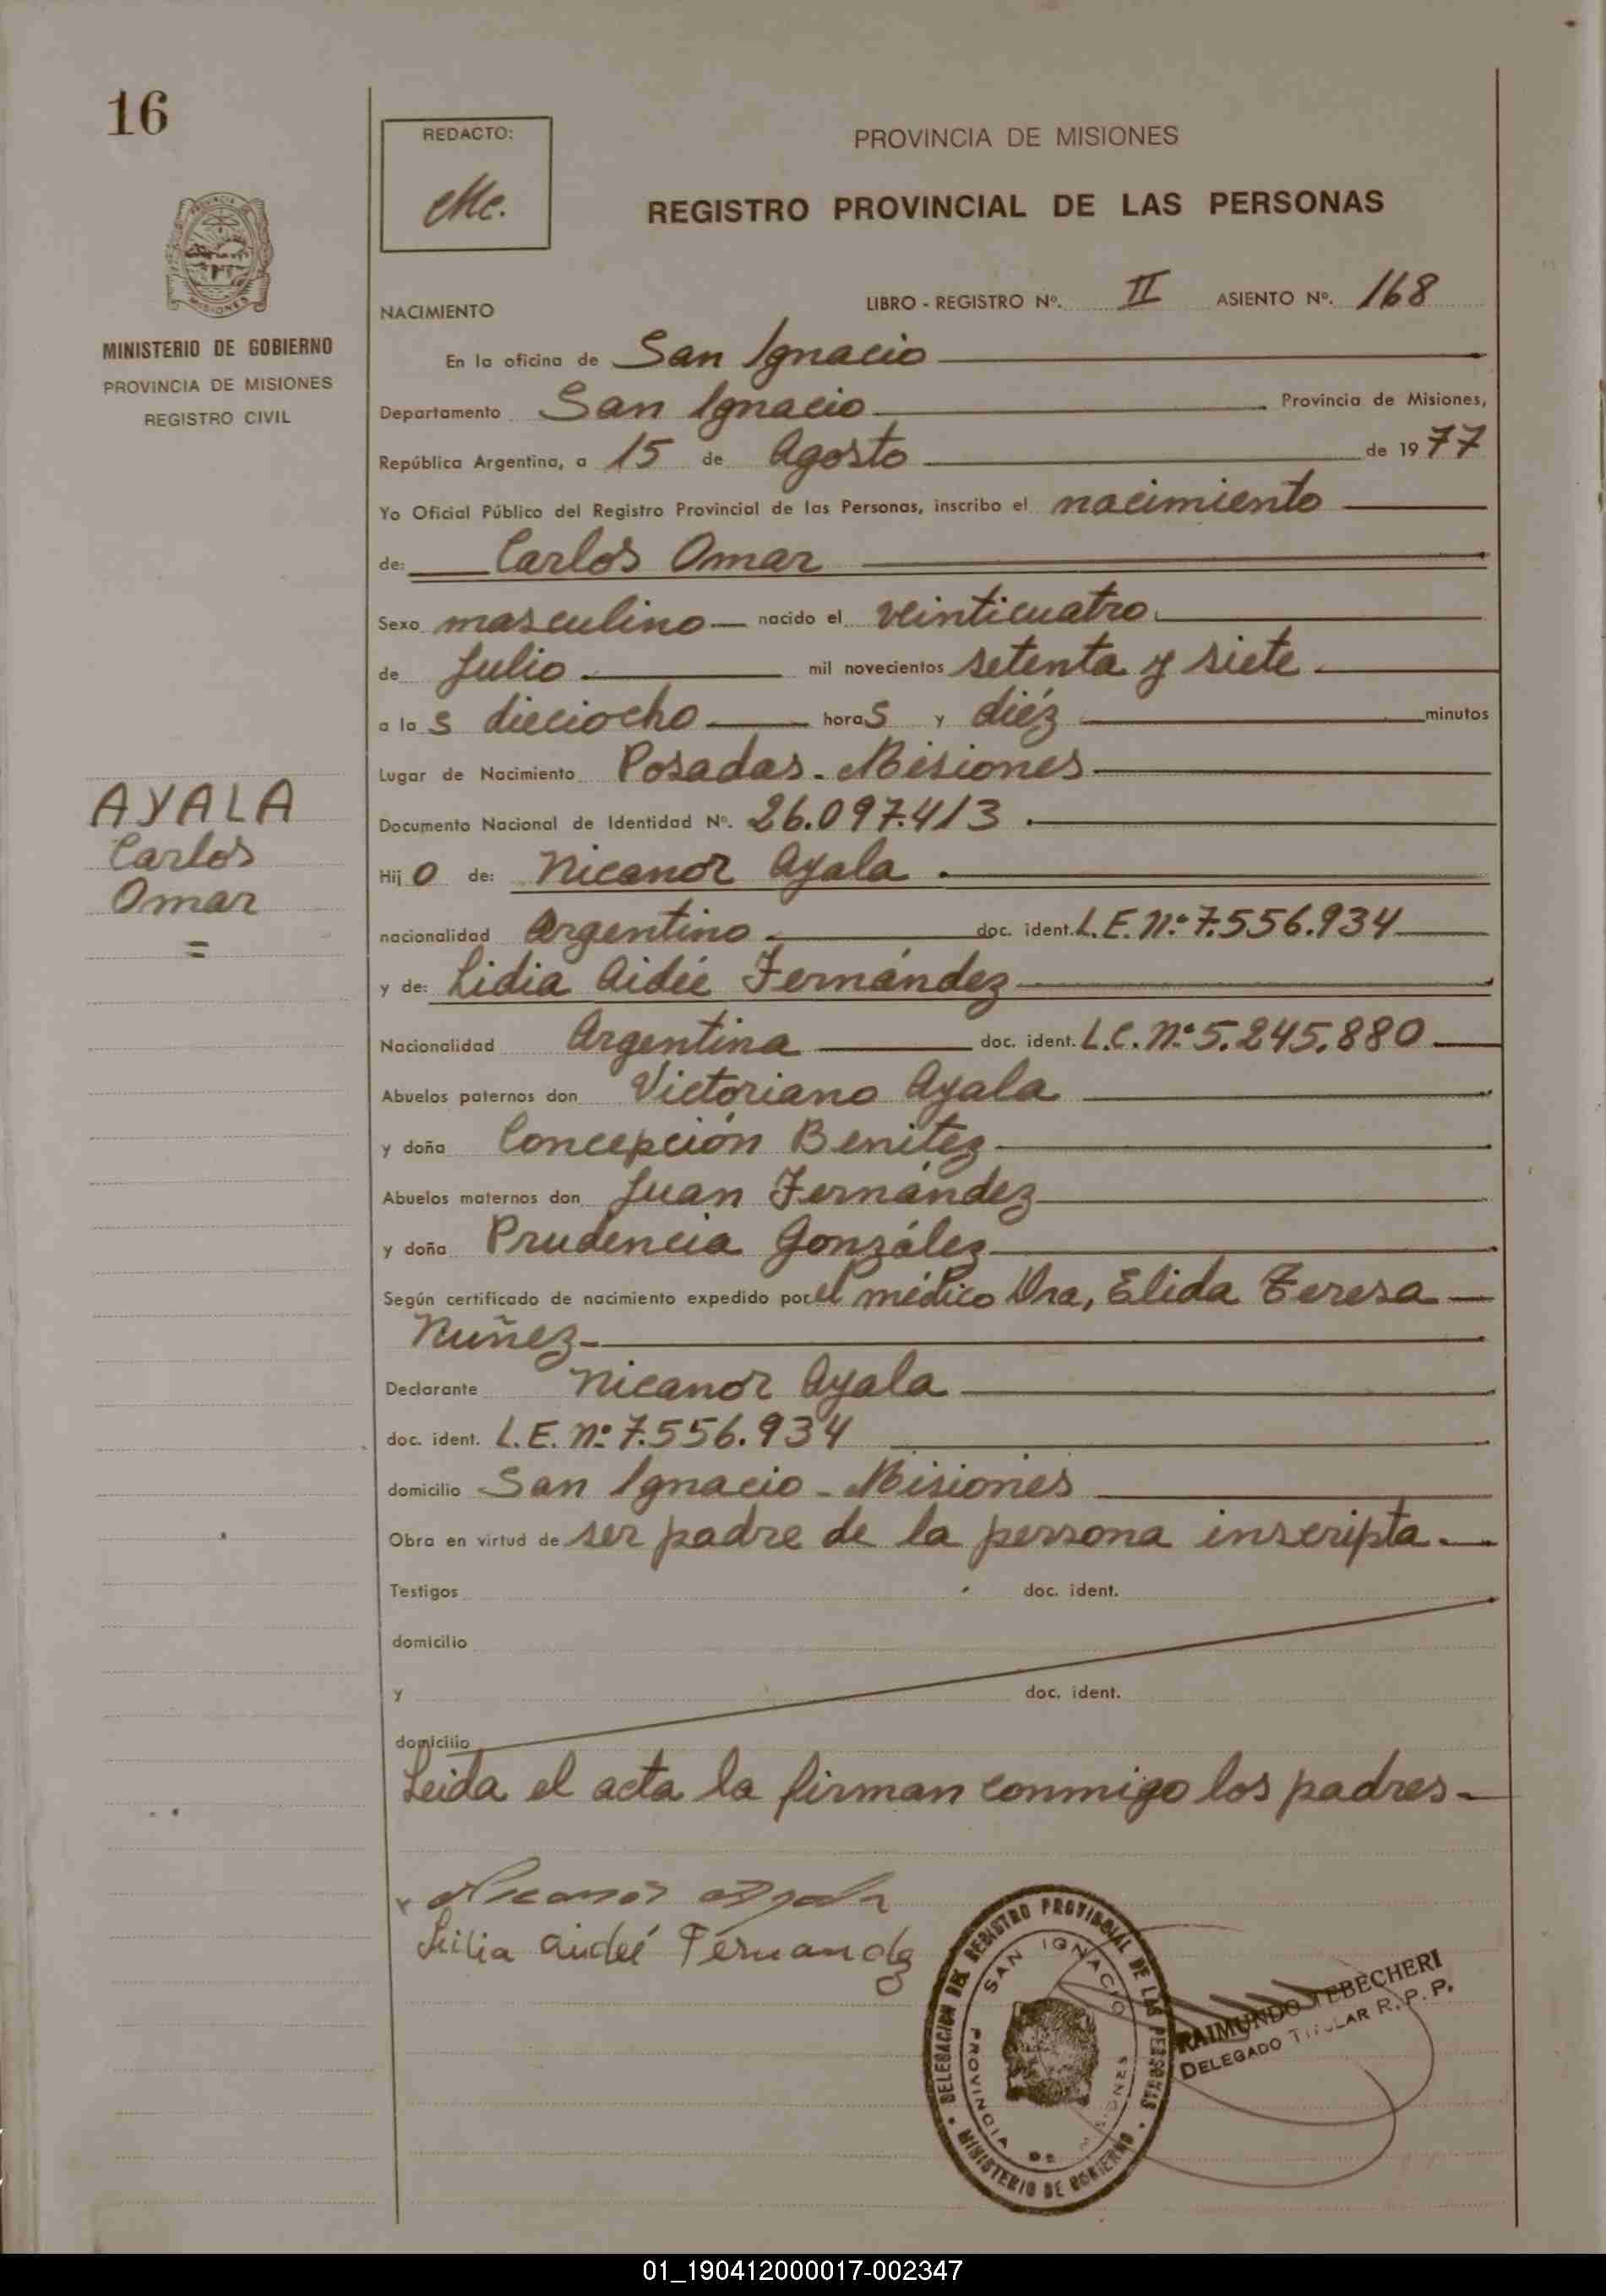 16
REDACTO:
Mc.
PROVINCIA DE MISIONES
REGISTRO PROVINCIAL DE LAS PERSONAS
MINISTERIO DE GOBIERNO
PROVINCIA DE MISIONES
REGISTRO CIVIL
NACIMIENTO LIBRO - REGISTRO Nº. II ASIENTO Nº. 168
En la oficina de San Ignacio
Departamento San Ignacio Provincia de Misiones,
República Argentina, a 15 de Agosto de 1977
Yo Oficial Público del Registro Provincial de las Personas, inscribo el nacimiento
de: Carlos Omar
Sexo masculino nacido el veinticuatro
de Julio mil novecientos setenta y siete
a las dieciocho horas y diéz minutos
Lugar de Nacimiento Posadas - Misiones
AYALA
Carlos
Omar
=
Documento Nacional de Identidad Nº. 26.097.413
Hijo de: Nicanor Ayala
nacionalidad Argentino doc. ident. L.E. Nº 7.556.934
y de: Lidia Aidée Fernández
Nacionalidad Argentina doc. ident. L.C. Nº 5.245.880
Abuelos paternos don Victoriano Ayala
y doña Concepción Benítez
Abuelos maternos don Juan Fernández
y doña Prudencia González
Según certificado de nacimiento expedido por el médico Dra, Elida Teresa
Nuñez
Declarante Nicanor Ayala
doc. ident. L.E. Nº 7.556.934
domicilio San Ignacio - Misiones
Obra en virtud de ser padre de la persona inscripta.
Testigos doc. ident.
domicilio
y doc. ident.
domicilio
Leida el acta la firman conmigo los padres
Nicanor Ayala
aideé Fernandz
DELEGACION DEL REGISTRO PROVINCIAL DE LAS PERSONAS
SAN IGNACIO
PROVINCIA DE MISIONES
MINISTERIO DE GOBIERNO
RAIMUNDO TEBECHERI
DELEGADO TITULAR R. P. P.
01_190412000017-002347